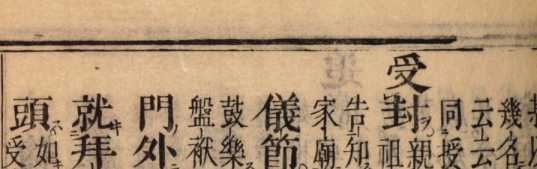 幾名
云云
同授
受封
祖親
告知
家廟
儀節
鼓樂
盤袱
門外
就拜
頭
如
受